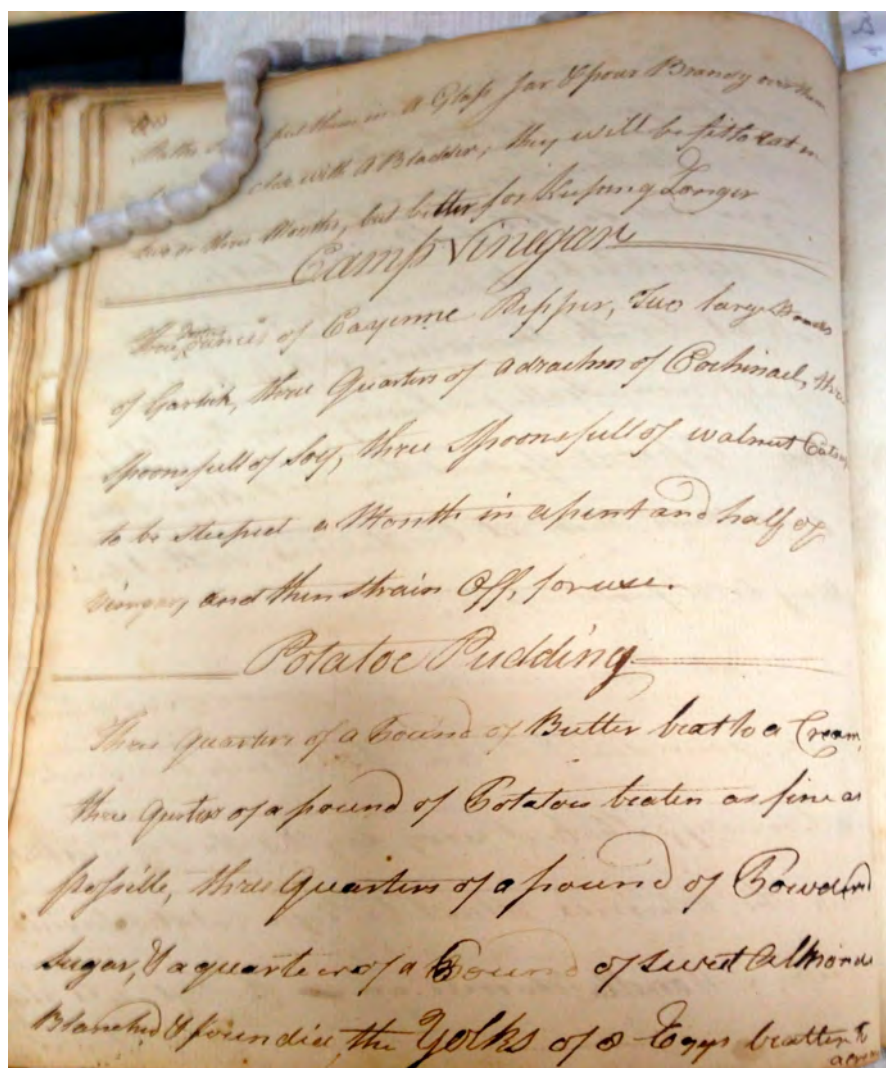 put them in A Glass Jar & pour Brandy over them
close with A Bladder, they will be fit to eat in
two or three Months, but better for Keeping Longer
Camp Vinegar
Three of Cayenne Pepper, Two large
of Garlick, three Quarters of a drachm of Cochinael, three
Spoonsfull of Soy, three Spoonsfull of walnut
to be steeped a Month in a pint and half of
and then strain Off, for use.
Potatoe Pudding
Three quarters of a Pound of Butter beat to a Cream,
three of a pound of Potatoes beaten as fine as
possible, three Quarters of a pound of
sugar, & a quarter of a Pound of sweet Almonds
Blanched & the Yolks of 8 Eggs